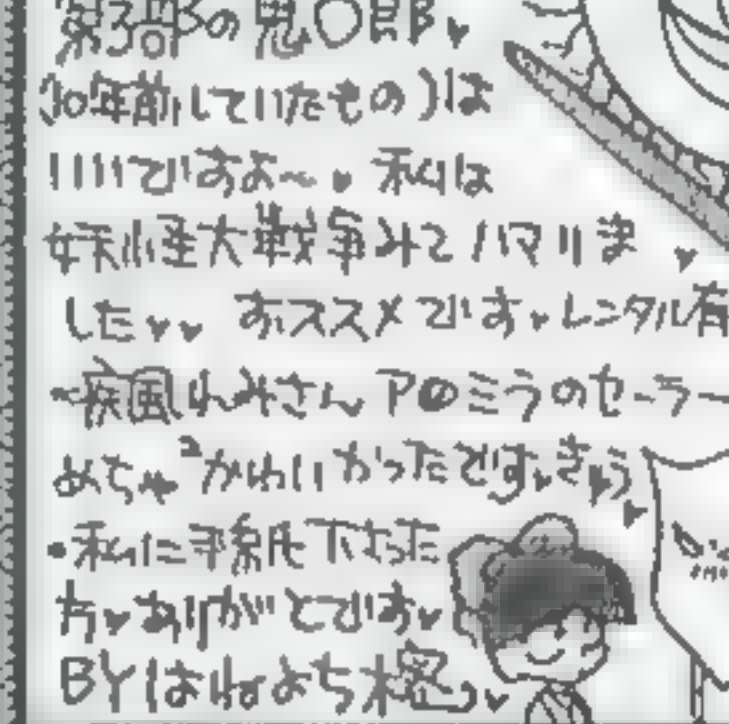 第3部の鬼〇郎♥
30年前していたもの)は
いいですよ~♥ 私は
妖怪大戦争みてハマりま
した♥♥ おススメです♥レンタル有
疾風れみさん アのミラのセーラー
めちゃ²かわいかったです♥きゅう
・私に手紙下さった
方♥ありがとです♥
BYはねよち